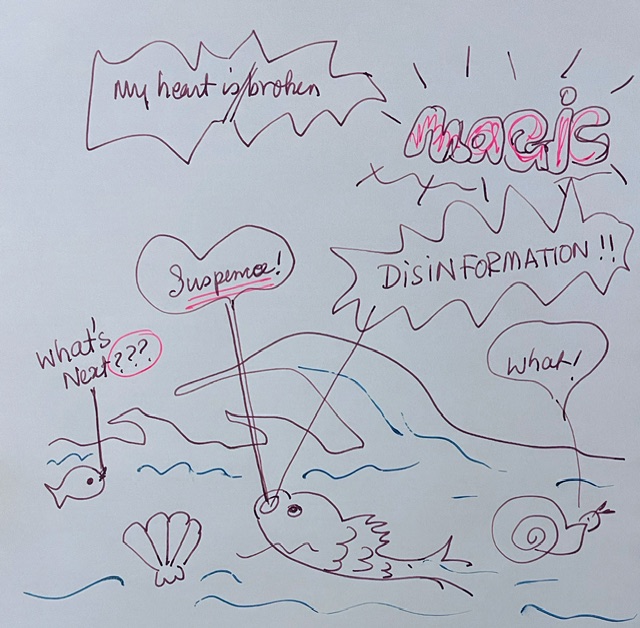 My heart is broken
magic
Suspense!
DiSiNFORMATION !!
What's
Next ???
What!